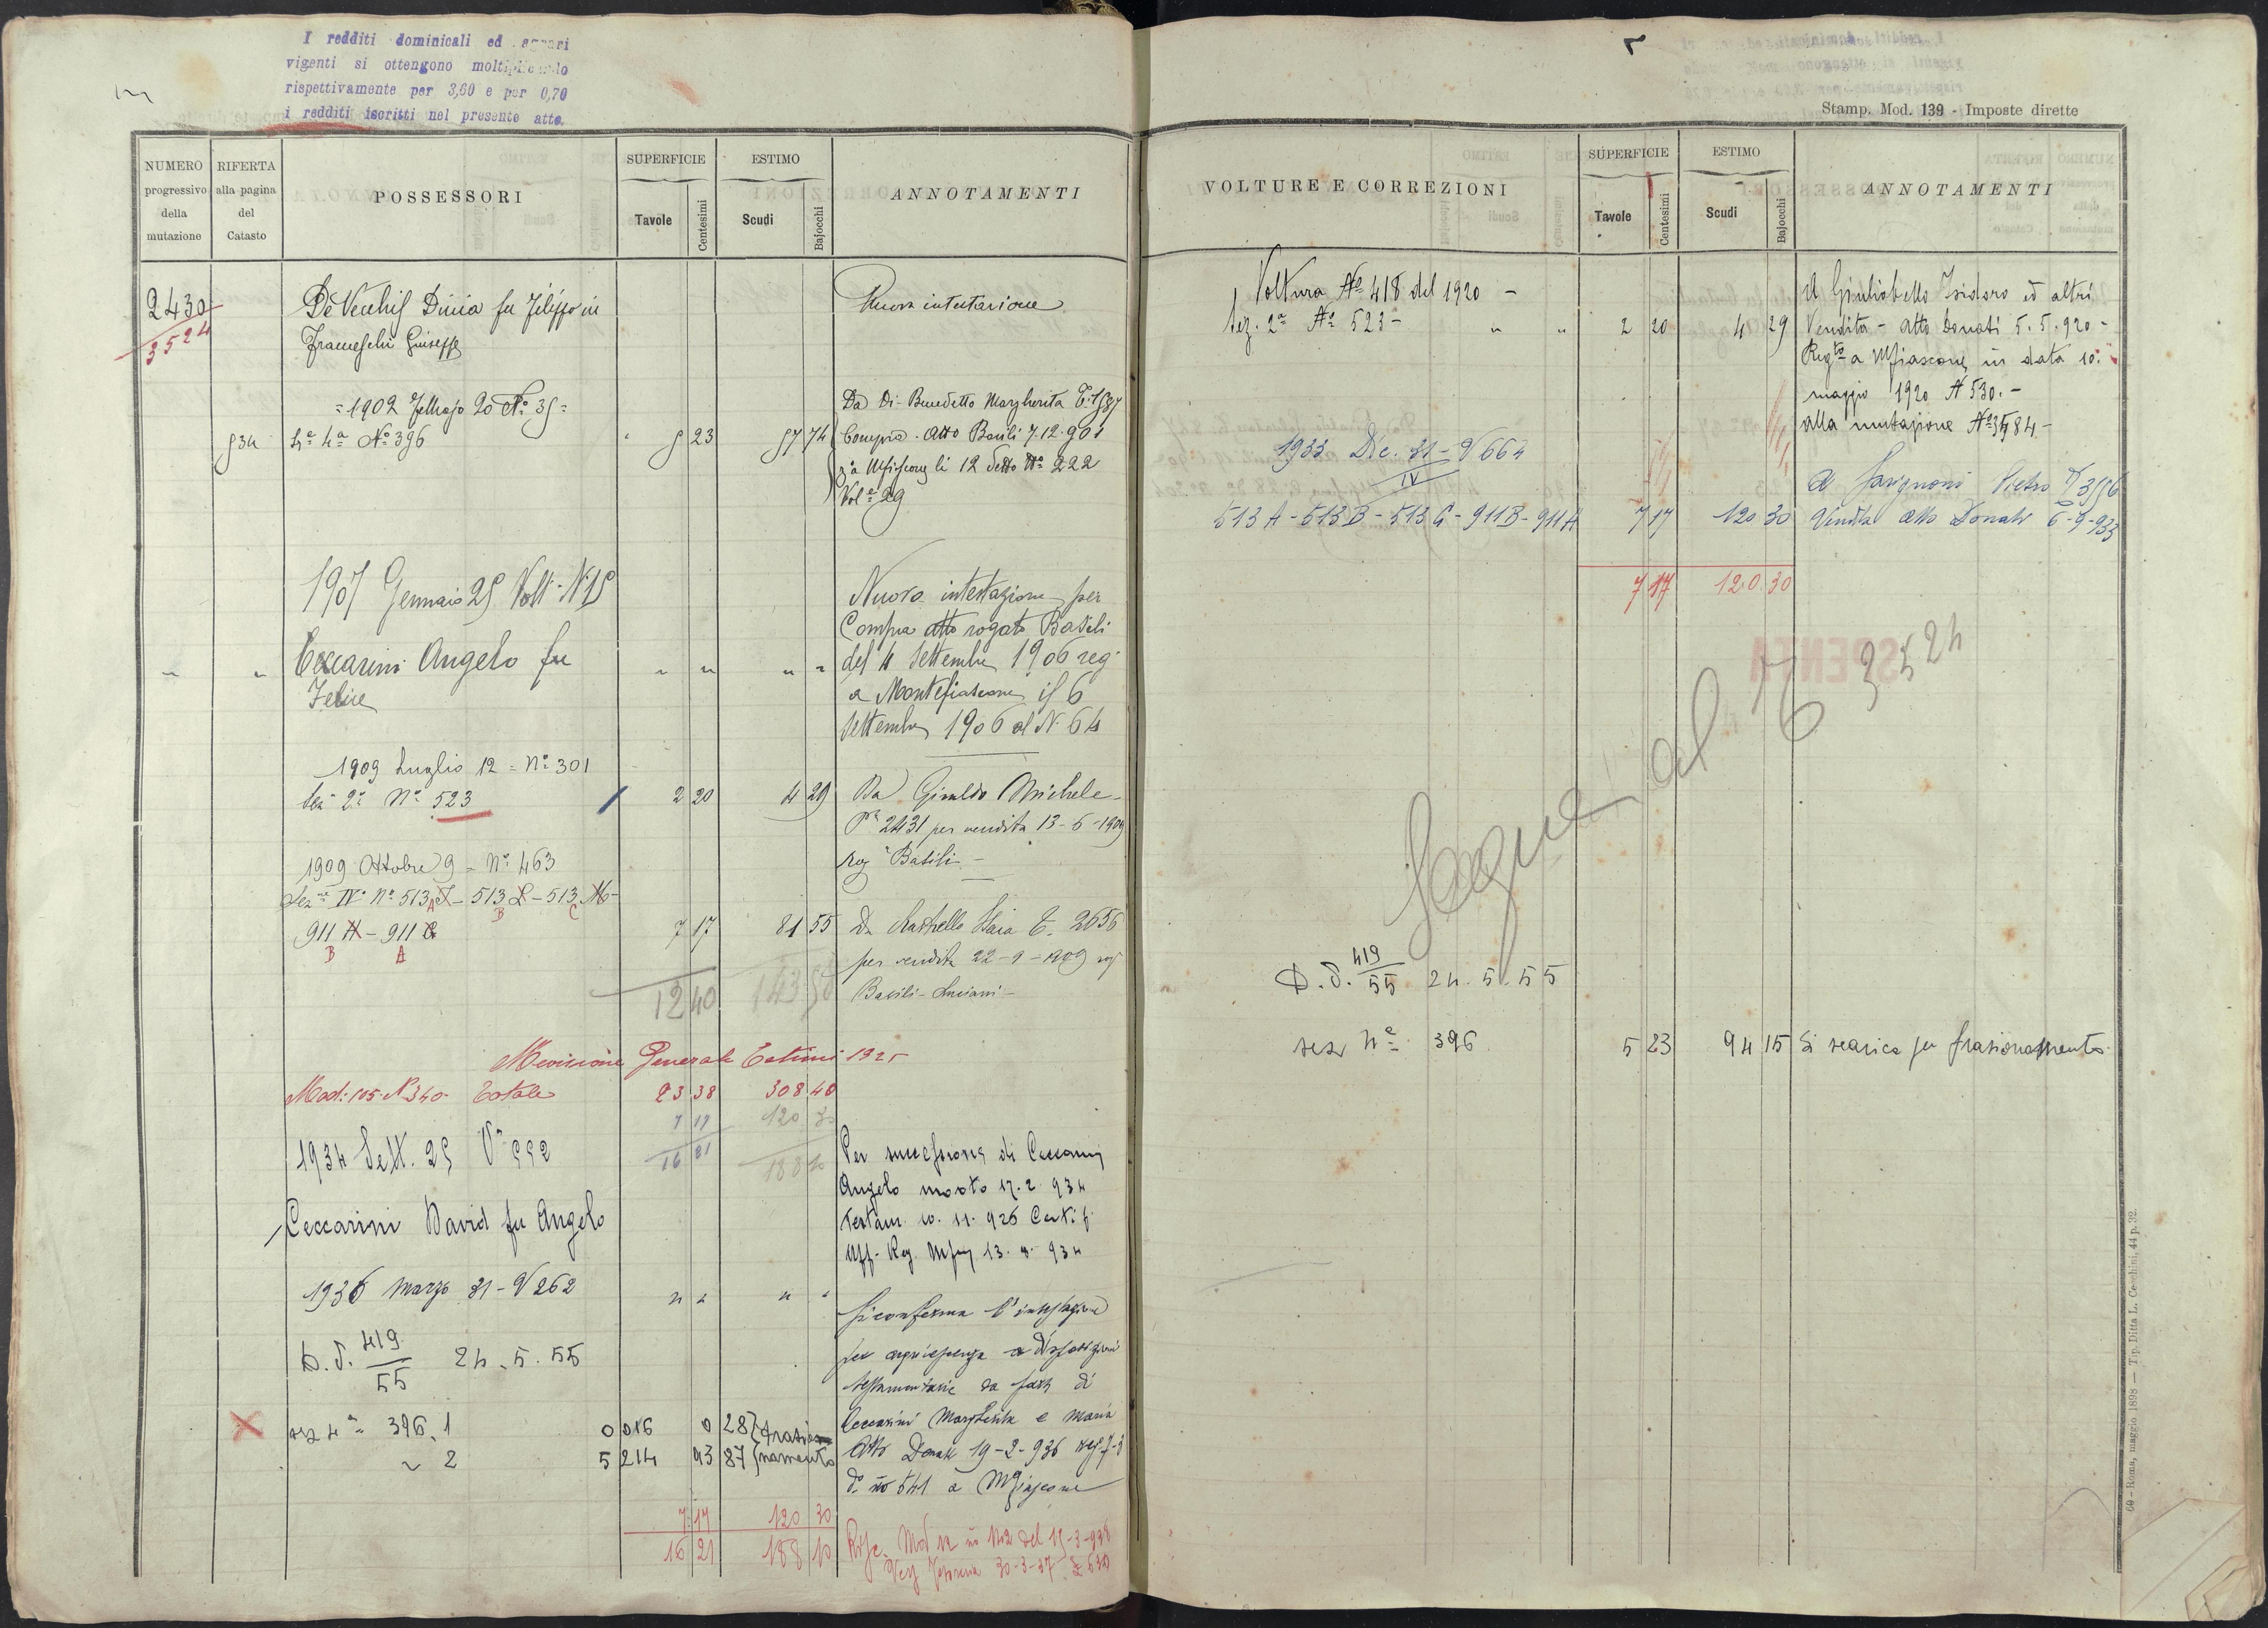 I redditi dominicali ed agrari
vigenti si ottengono moltiplicando
rispettivamente per 3,60 e per 0,70
i redditi iscritti nel presente atto.
NUMERO progressivo della mutazione
RIFERTA alla pagina del Catasto
POSSESSORI
SUPERFICIE
Tavole Centesimi
ESTIMO
Scudi Bajocchi
ANNOTAMENTI
2430
3524
De Vecchis Dinia fu Filippo in
Franceschi Giuseppe
Nuova intestazione
=1902 Febbrajo 20 No 35=
Da Di-Benedetto Margherita
No 396
23 74
Compra. Atto Basili 7.12.901
li 12 detto No 222
Vole 29
1907 Gennaio 25 Volt. N. 15
Ceccarini Angelo fu
Felice
Nuova intestazione per
Compra atto rogato Basili
del 4 Settembre 1906 reg.
a Montefiascone il 6
Settembre 1906 al N. 64
1909 Luglio 12 = No 301
Sez. 2a No 523
2 20 4 29
Da Giraldo Michele
2431 per vendita 13-6-1909
rog. Basili -
1909 Ottobre 9 = No 463
Sez.ne IVa No 513 A - 513 B - 513 C
911 B - 911 A
7 17 81 55
Da Rastrello T. 2656
per vendita 22-9-1909 rog.
Basili-Luciani-
12 40 143
Revisione Generale Estimi 1925
Mod: 105. N 340. Totale 23 38 308 40
7 17 120 30
16 21 188 10
1934 Sett. 25 V 552
Ceccarini David fu Angelo
Per successione di Ceccarini
Angelo morto 17.2.934
Testam. 10.11.926 Certif.
Uff. Reg.
1936 Marzo 31 - V 262
Si conferma l'intestazione
per acquiescenza a disposizioni
testamentarie da parte di
Ceccarini Margherita e Maria
Atto Donati 19-2-936
no 541 a Mfiascone
D.T. 419/55 24.5.55
sez 4a 396.1 0 016 0 28 } frazio-
~ 2 5 214 93 87 } namento
7 17 120 30
16 21 188 10
Stamp. Mod. 139 - Imposte dirette
VOLTURE E CORREZIONI
SUPERFICIE
Tavole Centesimi
ESTIMO
Scudi Bajocchi
ANNOTAMENTI
Voltura No 418 del 1920 -
Sez. 2a No 523 - " " 2 20 4 29
A Giulio bello Isidoro ed altri
Vendita - atto Donati 5.5.920 -
Regto a Mfiascone in data 10
maggio 1920 N 530.-
alla mutazione No 3584 -
1933 Dic. 31 - V 664
IV
513 A - 513 B - 513 C - 911 B - 911 A 7 17 120 30
A Pietro
Vendita atto Donati 6-9-933
7 17 120 30
SPENTA
Segue al T 3524
D.T. 419/55 24.5.55
sez 4a 396 5 23 94 15 Si scarica per frazionamento
60 - Roma, maggio 1898 — Tip. Ditta L. Cecchini, 44 p. 32.